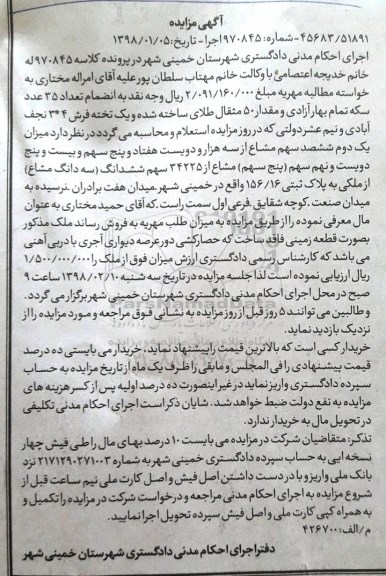 آگهی مزایده
۴۵۶۸۳/۵۱۸۹۱-شماره: ۹۷۰۸۴۵ اجرا- تاریخ: ۱۳۹۸/۰۱/۰۵
اجرای احکام مدنی دادگستری شهرستان خمینی شهر در پرونده کلاسه ۹۷۰۸۴۵ له
خانم خدیجه اعتصامی با وکالت خانم مهتاب سلطان پور علیه آقای امراله مختاری به
خواسته مطالبه مهریه مبلغ ۲/۰۹۱/۱۶۰/۰۰۰ ریال وجه نقد به انضمام تعداد ۳۵ عدد
سکه تمام بهار آزادی و مقدار ۵۰ مثقال طلای ساخته شده و یک تخته فرش ۴*۳ نجف
آبادی و نیم عشر دولتی که در روز مزایده استعلام و محاسبه می گردد در نظر دارد میزان
یک دوم ششصد سهم مشاع از سه هزار و دویست هفتاد و پنج سهم و بیست و پنج
دویست و نهم سهم (پنج سهم) مشاع از ۳۴۲۲۵ سهم ششدانگ (سه دانگ مشاع)
از ملکی به پلاک ثبتی ۱۵۶/۱۶ واقع در خمینی شهر، میدان هفت برادران ،نرسیده به
میدان صنعت ،کوچه شقایق ،فرعی اول سمت راست ،که آقای حمید مختاری به عنوان
مال معرفی نموده را از طریق مزایده به میزان طلب مهریه به فروش رساند ملک مذکور
بصورت قطعه زمینی فاقد ساخت که حصارکشی دور عرصه دیواری آجری با درپی آهنی
می باشد که کارشناس رسمی دادگستری ارزش میزان فوق از ملک را ۱/۵۰۰/۰۰۰/۰۰۰
ریال ارزیابی نموده است لذا جلسه مزایده در تاریخ سه شنبه ۱۳۹۸/۰۲/۱۰ ساعت ۹
صبح در محل اجرای احکام مدنی دادگستری شهرستان خمینی شهر برگزار می گردد.
و طالبین می توانند ۵ روز قبل از روز مزایده به نشانی فوق مراجعه و مورد مزایده را از
نزدیک بازدید نماید.
خریدار کسی است که بالاترین قیمت را پیشنهاد نماید، خریدار می بایستی ده درصد
قیمت پیشنهادی را فی المجلس و مابقی را ظرف یک ماه از تاریخ مزایده به حساب
سپرده دادگستری واریز نماید در غیر اینصورت ده درصد اولیه پس از کسر هزینه های
مزایده به نفع دولت ضبط خواهد شد. شایان ذکر است اجرای احکام مدنی تکلیفی
در تحویل مال به خریدار ندارد.
تذکر: متقاضیان شرکت در مزایده می بایست ۱۰ درصد بهای مال را طی فیش چهار
نسخه ایی به حساب سپرده دادگستری خمینی شهر به شماره ۲۱۷۱۲۹۰۲۷۱۰۰۳ نزد
بانک ملی واریز و با در دست داشتن اصل فیش و اصل کارت ملی نیم ساعت قبل از
شروع مزایده به اجرای احکام مدنی مراجعه و درخواست شرکت در مزایده را تکمیل و
به همراه کپی کارت ملی و اصل فیش سپرده تحویل اجرا نمایید.
م/الف: ۴۲۶۷۰۰
دفتر اجرای احکام مدنی دادگستری شهرستان خمینی شهر